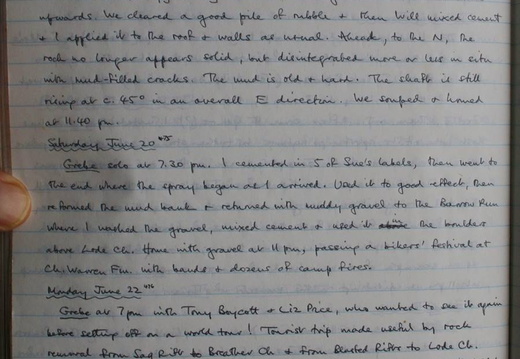 upwards. We cleared a good pile of rubble & then Will mixed cement
& I applied it to the roof & walls as usual. Ahead, to the N, the
rock no longer appears solid, but disintegrated more or less in situ
with mud-filled cracks. The mud is old & hard. The shaft is still
rising at c. 45° in an overall E direction. We souped & homed
at 11.40 pm.
Saturday June 20 475
Grebe solo at 7.30 pm. I cemented in 5 of Sue's labels, then went to
the end where the spray began as I arrived. Used it to good effect, then
reformed the mud bank & returned with muddy gravel to the Barrow Run
where I washed the gravel, mixed cement & used it in the boulders
above Lode Ch. Home with gravel at 11 pm, passing a bikers' festival at
Ch. Warren Fm. with bands & dozens of camp fires.
Monday June 22 476
Grebe at 7 pm with Tony Boycott & Liz Price, who wanted to see it again
before setting off on a world tour! Tourist trip made useful by rock
removal from Sag Rift to Breather Ch & from Blasted Rift to Lode Ch.